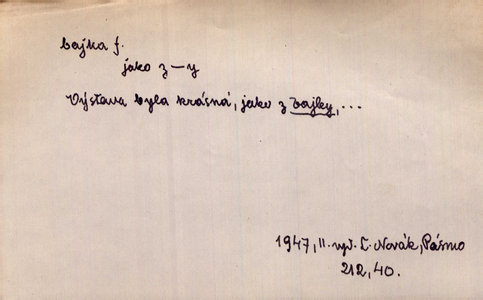 bajka f.
jako z —y
Výstava byla krásná, jako z bajky, ...
1947, II. vyd. L. Novák, Pásmo
212, 40.